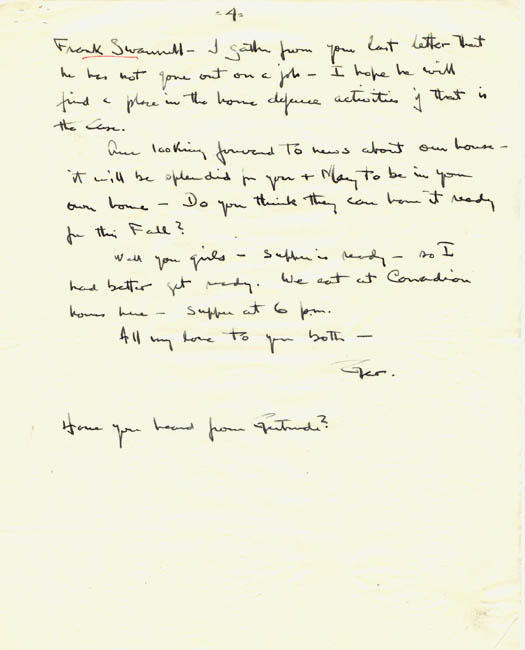 -4-
Frank Swannell - I gather from your last letter that
he has not gone out on a job - I hope he will
find a place in the home defence activities if that is
the case.
Am looking forward to news about our house -
it will be splendid for you + May to be in your
own home - Do you think they can have it ready
for this Fall?
Well you girls - supper is ready - so I
had better get ready. We eat at Canadian
hours here - supper at 6 p.m.
All my love to you both -
Geo.
Have you heard from Gertrude?